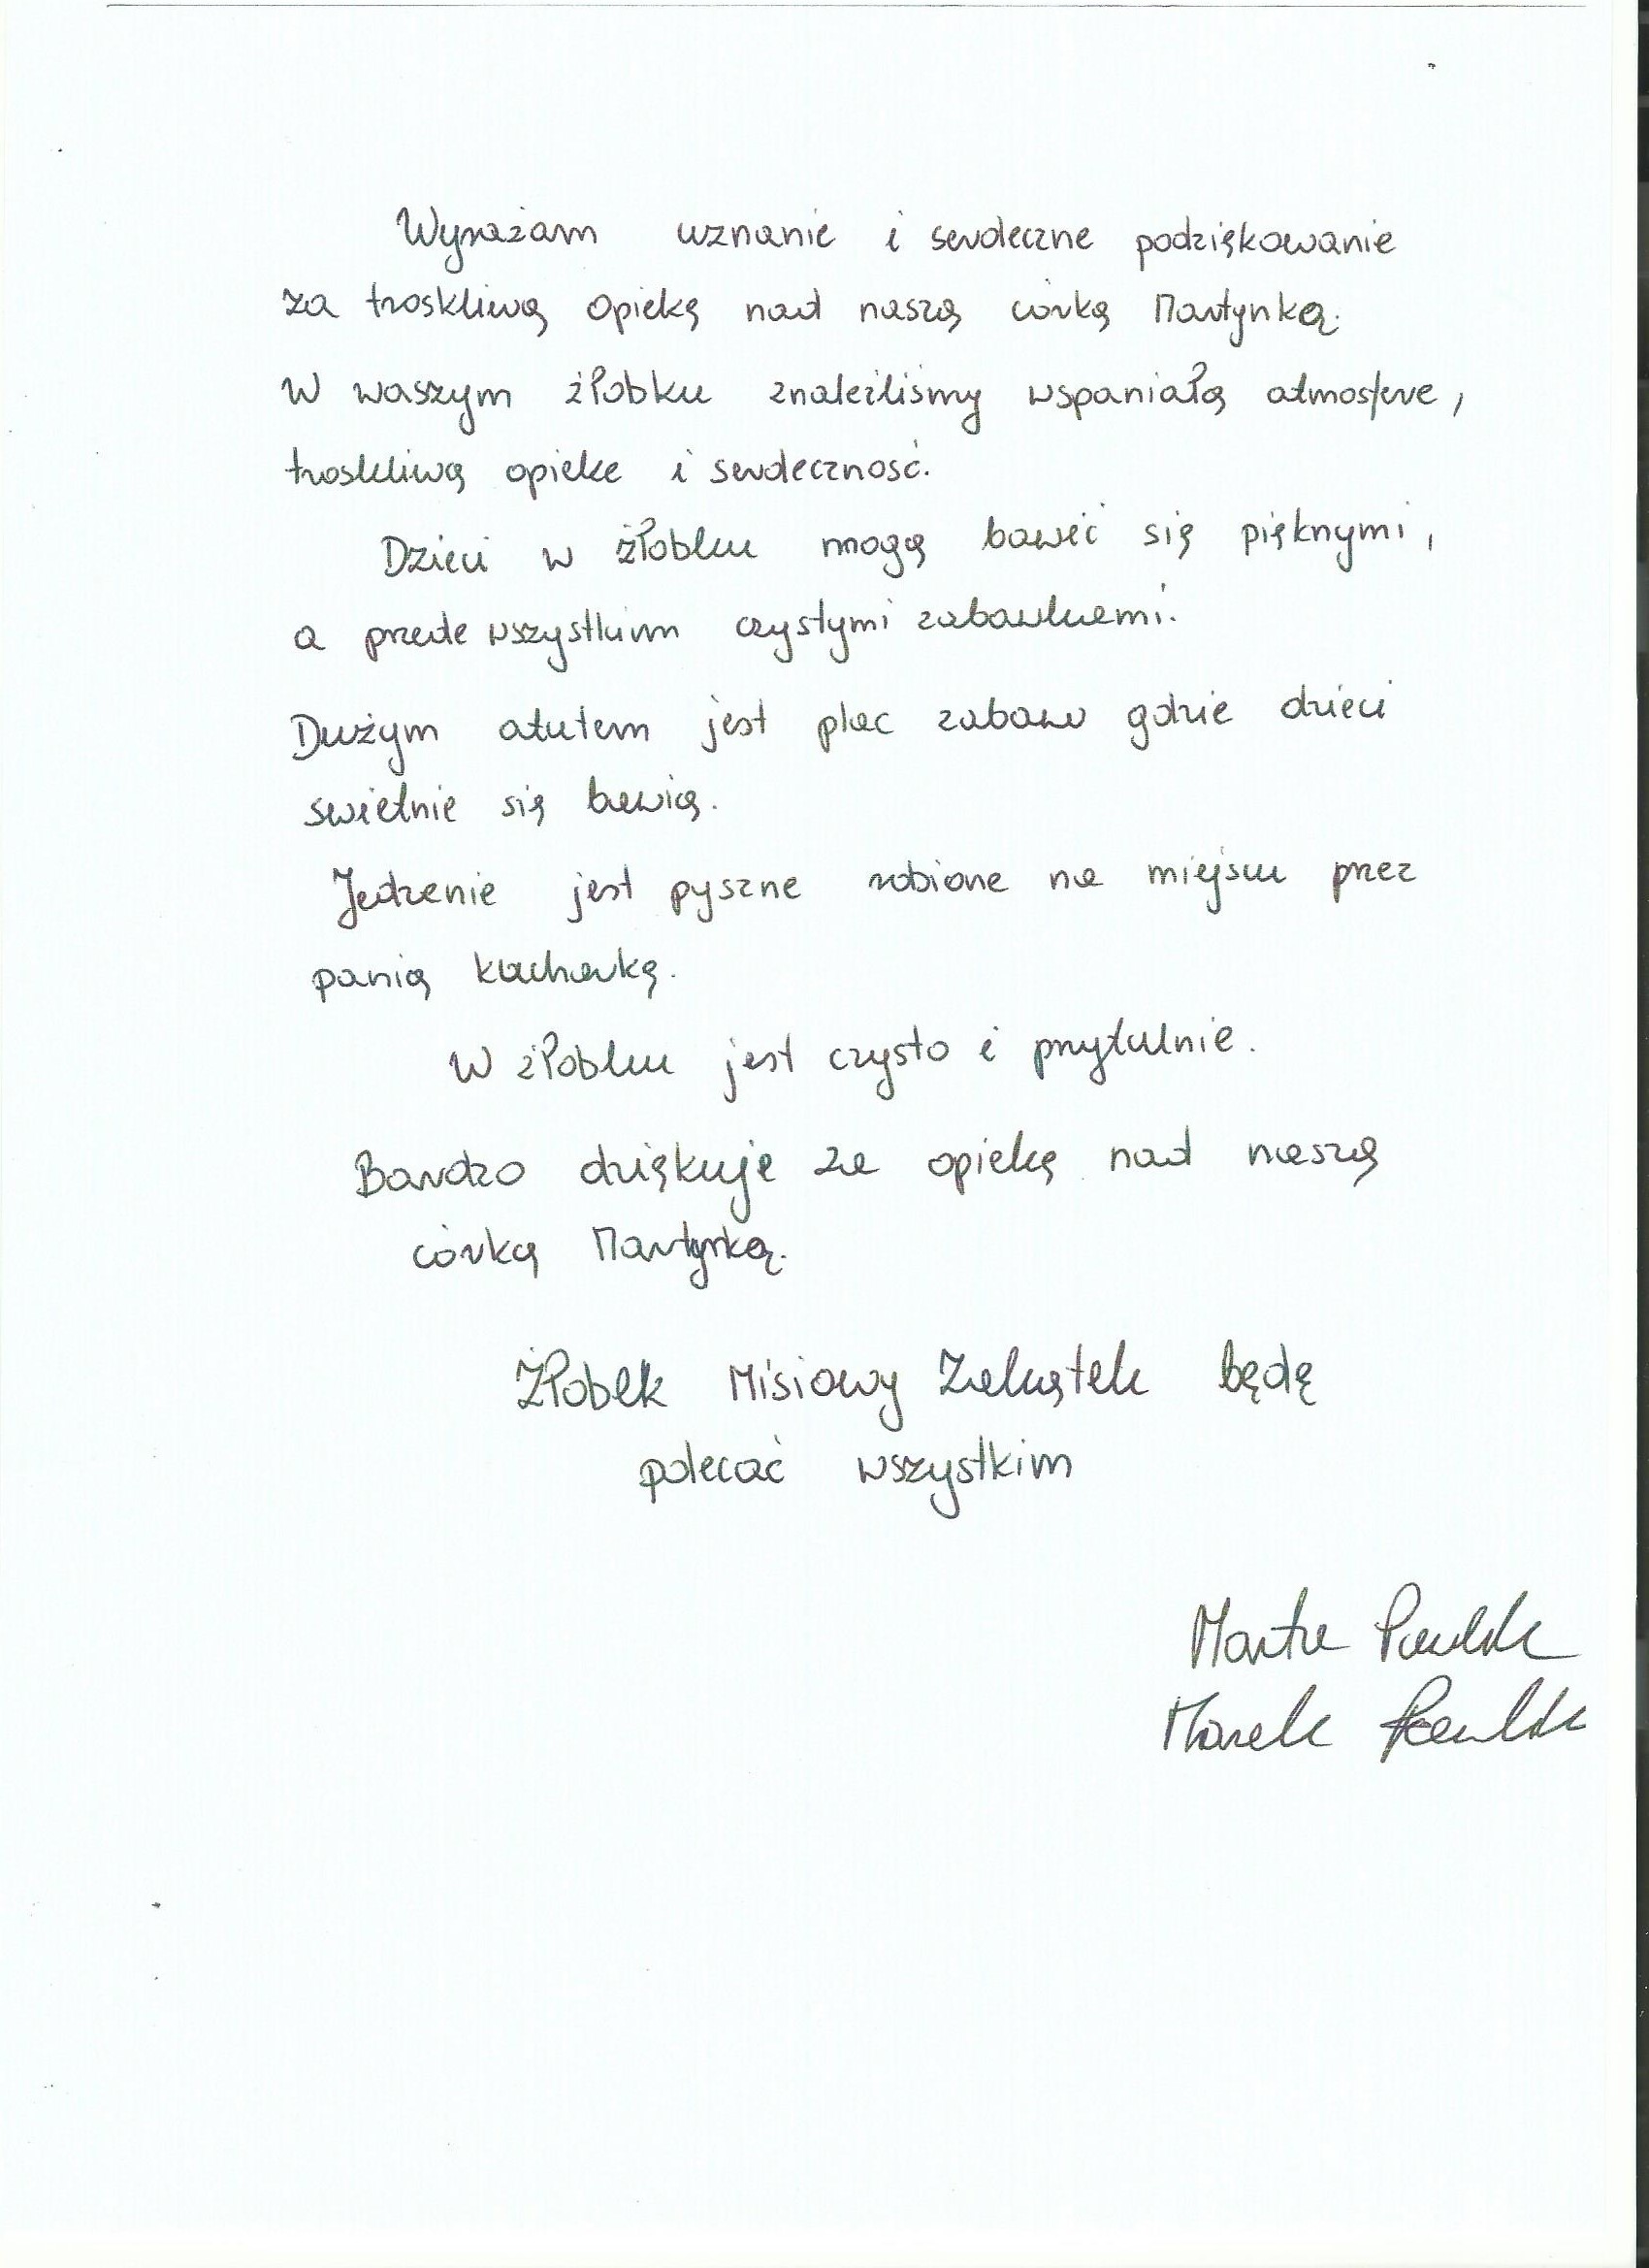 Wyrażam uznanie i serdeczne podziękowanie
za troskliwą opieką nad naszą córką Martynką.
W waszym żłobku znaleźlismy wspaniałą atmosfere,
troskliwą opieke i serdeczność.
Dzieci w żłobku mogą bawić się pięknymi,
a przede wszystkim czystymi zabawkami.
Dużym atutem jest plac zabaw gdzie dzieci
swietnie się bawią.
Jedzenie jest pyszne robione na miejscu przez
panią kucharkę.
W żłobku jest czysto i przytulnie.
Bardzo dziękuje za opiekę nad naszą
córką Martynką.
Żłobek Misiowy Zakątek będę
polecać wszystkim
Marta
Marek